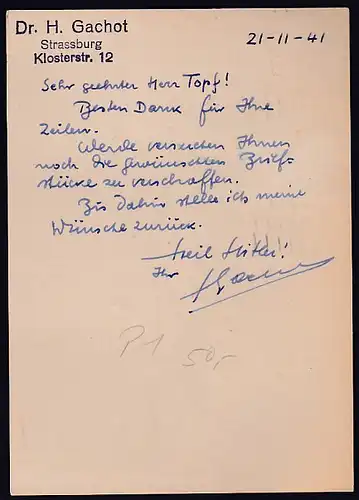 Dr. H. Gachot
Strassburg
Klosterstr. 12
21-11-41
Sehr geehrter Herr Topf!
Besten Dank für Ihre
Zeilen.
Werde versuchen Ihnen
noch die gewünschten Brief-
stücke zu verschaffen.
Bis dahin stelle ich meine
Wünsche zurück.
Heil Hitler!
Ihr
P1
50,-